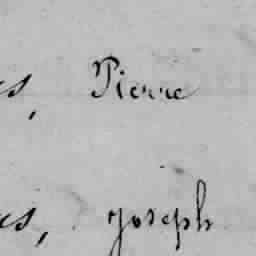 es, Pierre
es, joseph